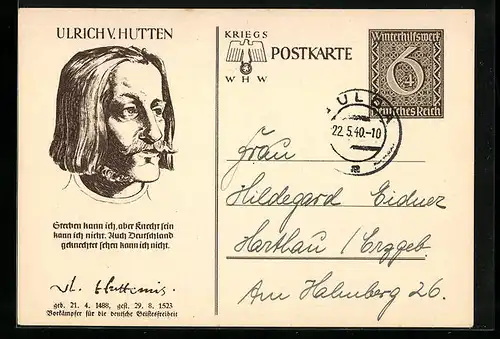 ULRICH V. HUTTEN
Sterben kann ich, aber Knecht sein
kann ich nicht. Auch Deutschland
geknechtet sehen kann ich nicht.
geb. 21. 4. 1488, gest. 29. 8. 1523
Vorkämpfer für die deutsche Geistesfreiheit
KRIEGS
WHW
POSTKARTE
Winterhilfswerk
6+4
Deutsches Reich
22.5.40.-10
a
Frau
Hildegard Eidner
Harthau / Erzgeb.
Am Halmberg 26.